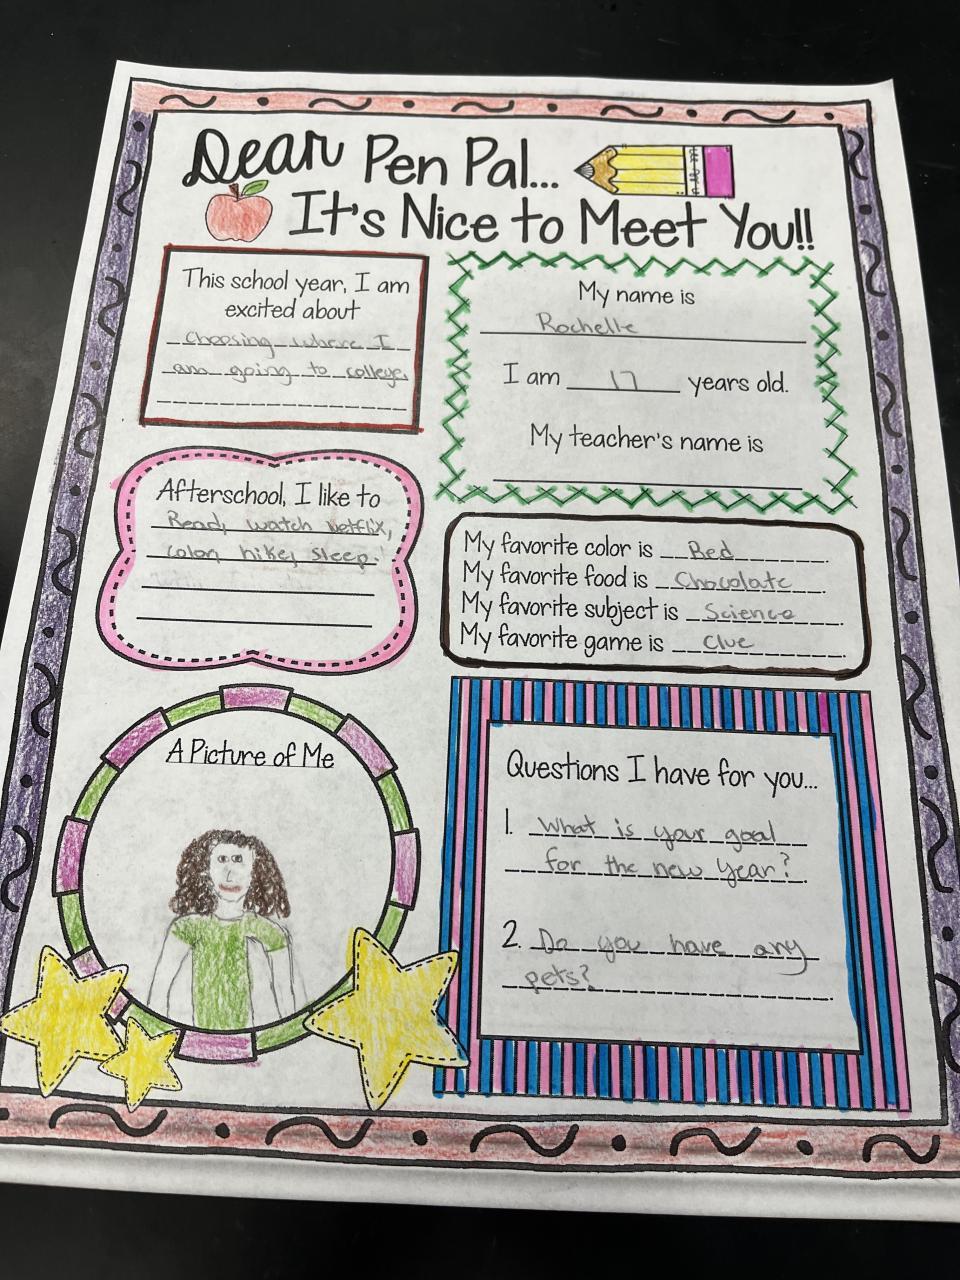 Dear Pen Pal...
It's Nice to Meet You!!
This school year, I am
excited about
Choosing where I
am going to college
My name is
Rochelle
I am 17 years old.
My teacher's name is
Afterschool, I like to
Read, watch netflix,
color, hike, sleep.
My favorite color is Red.
My favorite food is Chocolate.
My favorite subject is Science.
My favorite game is Clue.
A Picture of Me
Questions I have for you...
1. What is your goal
for the new year?
2. Do you have any
pets?